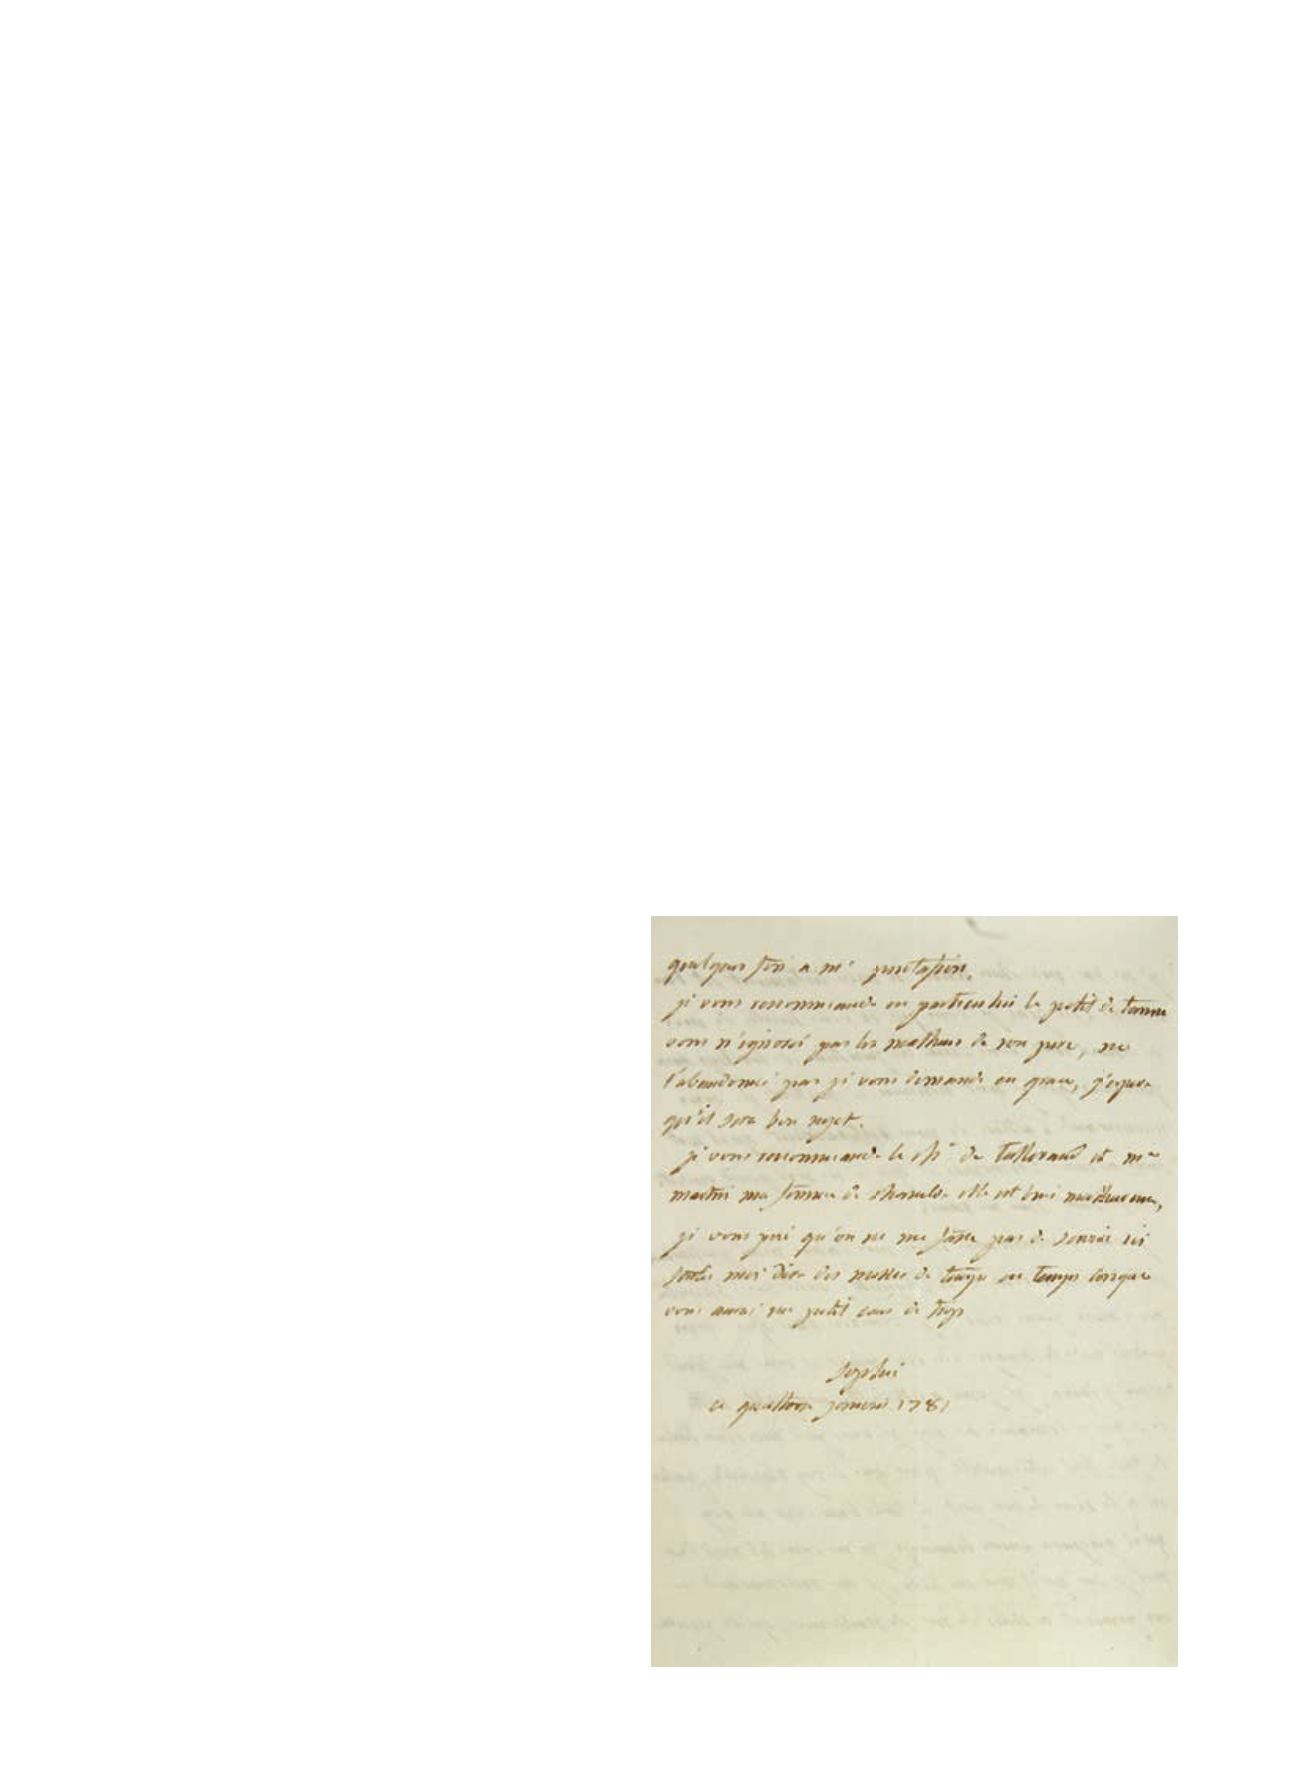 quelques fois a me
je vous recommande en particulié le petit de
vous n'ignoré pas les malheurs de son pere, ne
l'abandonné pas je vous demande en grace, j'espere
qu'il sera bon sujet.
je vous recommande le ch^r de tallerand et m^de
martin ma femme de chambre elle est bien malheureuse,
je vous prie qu'on ne me fasse pas de service ici
faites moi dire des messes de temps en temps lorsque
vous aurai un petit ecu de trop
ce quattorze janvier 1781